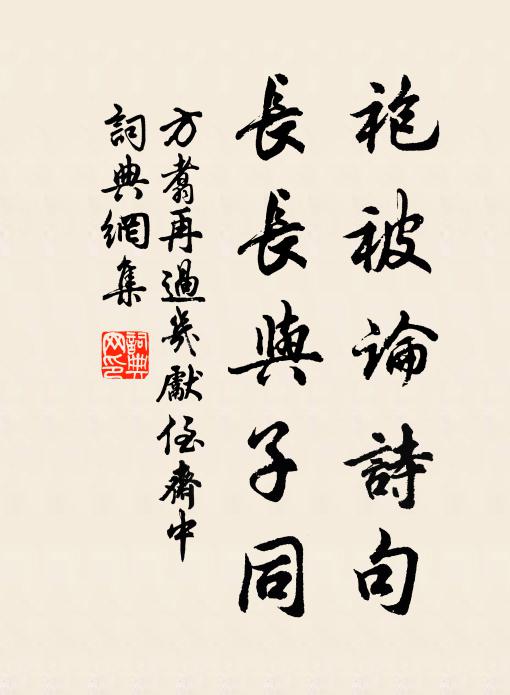 袍被論詩句
長長與子同
方翥再過吳獻侄齋中
詞典網集
詞典
网印